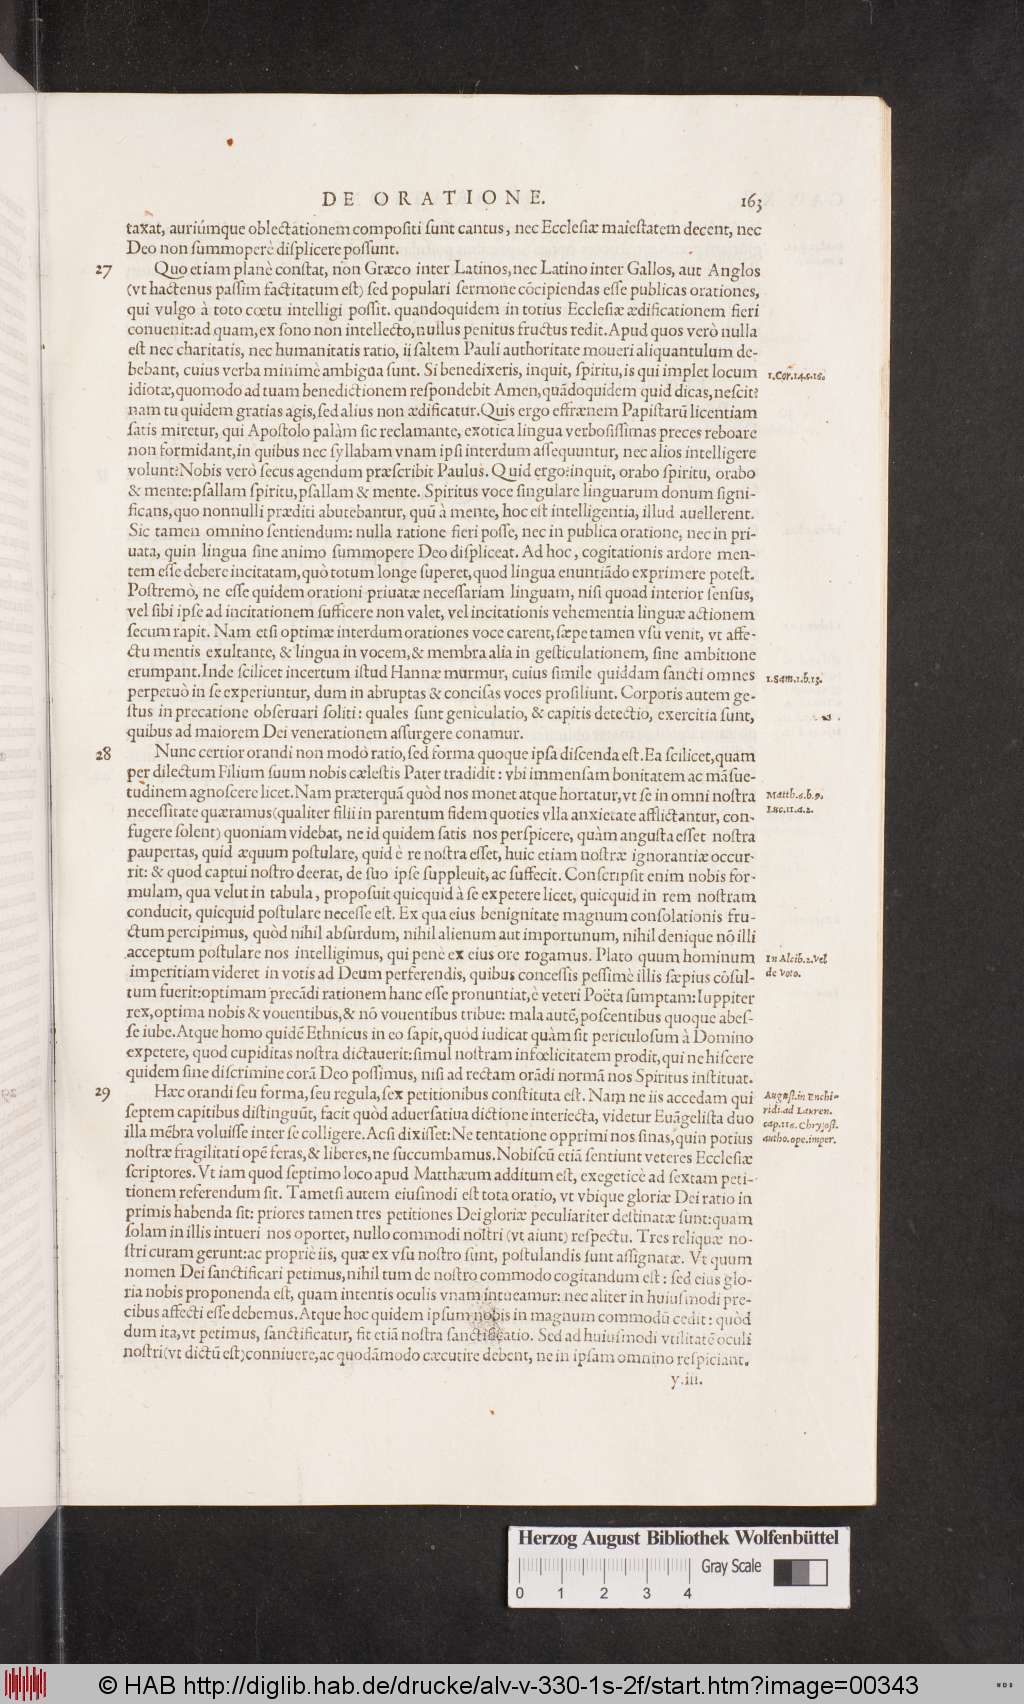 DE ORATIONE. 163
taxat, auriúmque oblectationem compositi sunt cantus, nec Ecclesiæ maiestatem decent, nec
Deo non summoperè displicere possunt.
27 Quo etiam planè constat, non Græco inter Latinos, nec Latino inter Gallos, aut Anglos
(vt hactenus passim factitatum est) sed populari sermone cōcipiendas esse publicas orationes,
qui vulgo à toto cœtu intelligi possit. quandoquidem in totius Ecclesiæ ædificationem fieri
conuenit: ad quam, ex sono non intellecto, nullus penitus fructus redit. Apud quos verò nulla
est nec charitatis, nec humanitatis ratio, ii saltem Pauli authoritate moueri aliquantulum de-
bebant, cuius verba minimè ambigua sunt. Si benedixeris, inquit, spiritu, is qui implet locum
1.Cor.14.c.16.
idiotæ, quomodo ad tuam benedictionem respondebit Amen, quādoquidem quid dicas, nescit?
nam tu quidem gratias agis, sed alius non ædificatur. Quis ergo effrænem Papistarū licentiam
satis miretur, qui Apostolo palàm sic reclamante, exotica lingua verbosissimas preces reboare
non formidant, in quibus nec syllabam vnam ipsi interdum assequuntur, nec alios intelligere
volunt? Nobis verò secus agendum præscribit Paulus. Quid ergo: inquit, orabo spiritu, orabo
& mente: psallam spiritu, psallam & mente. Spiritus voce singulare linguarum donum signi-
ficans, quo nonnulli præditi abutebantur, quū à mente, hoc est intelligentia, illud auellerent.
Sic tamen omnino sentiendum: nulla ratione fieri posse, nec in publica oratione, nec in pri-
uata, quin lingua sine animo summopere Deo displiceat. Ad hoc, cogitationis ardore men-
tem esse debere incitatam, quò totum longe superet, quod lingua enuntiādo exprimere potest.
Postremò, ne esse quidem orationi priuatæ necessariam linguam, nisi quoad interior sensus,
vel sibi ipse ad incitationem sufficere non valet, vel incitationis vehementia linguæ actionem
secum rapit. Nam etsi optimæ interdum orationes voce carent, sæpe tamen vsu venit, vt affe-
ctu mentis exultante, & lingua in vocem, & membra alia in gesticulationem, sine ambitione
erumpant. Inde scilicet incertum istud Hannæ murmur, cuius simile quiddam sancti omnes
1.Sam.1.b.13.
perpetuò in se experiuntur, dum in abruptas & concisas voces prosiliunt. Corporis autem ge-
stus in precatione obseruari soliti: quales sunt geniculatio, & capitis detectio, exercitia sunt,
quibus ad maiorem Dei venerationem assurgere conamur.
28 Nunc certior orandi non modò ratio, sed forma quoque ipsa discenda est. Ea scilicet, quam
per dilectum Filium suum nobis cælestis Pater tradidit: vbi immensam bonitatem ac māsue-
tudinem agnoscere licet. Nam præterquā quòd nos monet atque hortatur, vt se in omni nostra
Matth.6.b.9.
necessitate quæramus (qualiter filii in parentum fidem quoties vlla anxietate afflictantur, con-
Luc.11.a.2.
fugere solent) quoniam videbat, ne id quidem satis nos perspicere, quàm angusta esset nostra
paupertas, quid æquum postulare, quid è re nostra esset, huic etiam nostræ ignorantiæ occur-
rit: & quod captui nostro deerat, de suo ipse suppleuit, ac suffecit. Conscripsit enim nobis for-
mulam, qua velut in tabula, proposuit quicquid à se expetere licet, quicquid in rem nostram
conducit, quicquid postulare necesse est. Ex qua eius benignitate magnum consolationis fru-
ctum percipimus, quòd nihil absurdum, nihil alienum aut importunum, nihil denique nō illi
acceptum postulare nos intelligimus, qui penè ex eius ore rogamus. Plato quum hominum
In Alcib.2.vel
imperitiam videret in votis ad Deum perferendis, quibus concessis pessimè illis sæpius cōsul-
de voto.
tum fuerit: optimam precādi rationem hanc esse pronuntiat, è veteri Poëta sumptam: Iuppiter
rex, optima nobis & vouentibus, & nō vouentibus tribue: mala autē, poscentibus quoque abes-
se iube. Atque homo quidē Ethnicus in eo sapit, quòd iudicat quàm sit periculosum à Domino
expetere, quod cupiditas nostra dictauerit: simul nostram infœlicitatem prodit, qui ne hiscere
quidem sine discrimine corā Deo possimus, nisi ad rectam orādi normā nos Spiritus instituat.
29 Hæc orandi seu forma, seu regula, sex petitionibus constituta est. Nam ne iis accedam qui
August.in Enchi-
septem capitibus distinguūt, facit quòd aduersatiua dictione interiecta, videtur Euāgelista duo
ridi.ad Lauren.
illa mēbra voluisse inter se colligere. Acsi dixisset: Ne tentatione opprimi nos sinas, quin potius
cap.116. Chrysost.
nostræ fragilitati opē feras, & liberes, ne succumbamus. Nobiscū etiā sentiunt veteres Ecclesiæ
autho.ope.imper.
scriptores. Vt iam quod septimo loco apud Matthæum additum est, exegeticè ad sextam peti-
tionem referendum sit. Tametsi autem eiusmodi est tota oratio, vt vbique gloriæ Dei ratio in
primis habenda sit: priores tamen tres petitiones Dei gloriæ peculiariter destinatæ sunt: quam
solam in illis intueri nos oportet, nullo commodi nostri (vt aiunt) respectu. Tres reliquæ no-
stri curam gerunt: ac propriè iis, quæ ex vsu nostro sunt, postulandis sunt assignatæ. Vt quum
nomen Dei sanctificari petimus, nihil tum de nostro commodo cogitandum est: sed eius glo-
ria nobis proponenda est, quam intentis oculis vnam intueamur: nec aliter in huiusmodi pre-
cibus affecti esse debemus. Atque hoc quidem ipsum nobis in magnum commodū cedit: quòd
dum ita, vt petimus, sanctificatur, fit etiā nostra sanctificatio. Sed ad huiusmodi vtilitatē oculi
nostri (vt dictū est) conniuere, ac quodāmodo cæcutire debent, ne in ipsam omnino respiciant.
y.iii.
Herzog August Bibliothek Wolfenbüttel
Gray Scale
0 1 2 3 4
© HAB http://diglib.hab.de/drucke/alv-v-330-1s-2f/start.htm?image=00343